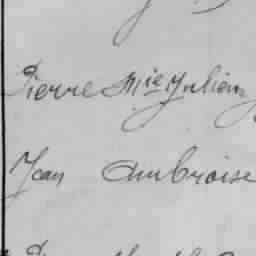 Pierre Mie Julien
Jean Ambroise